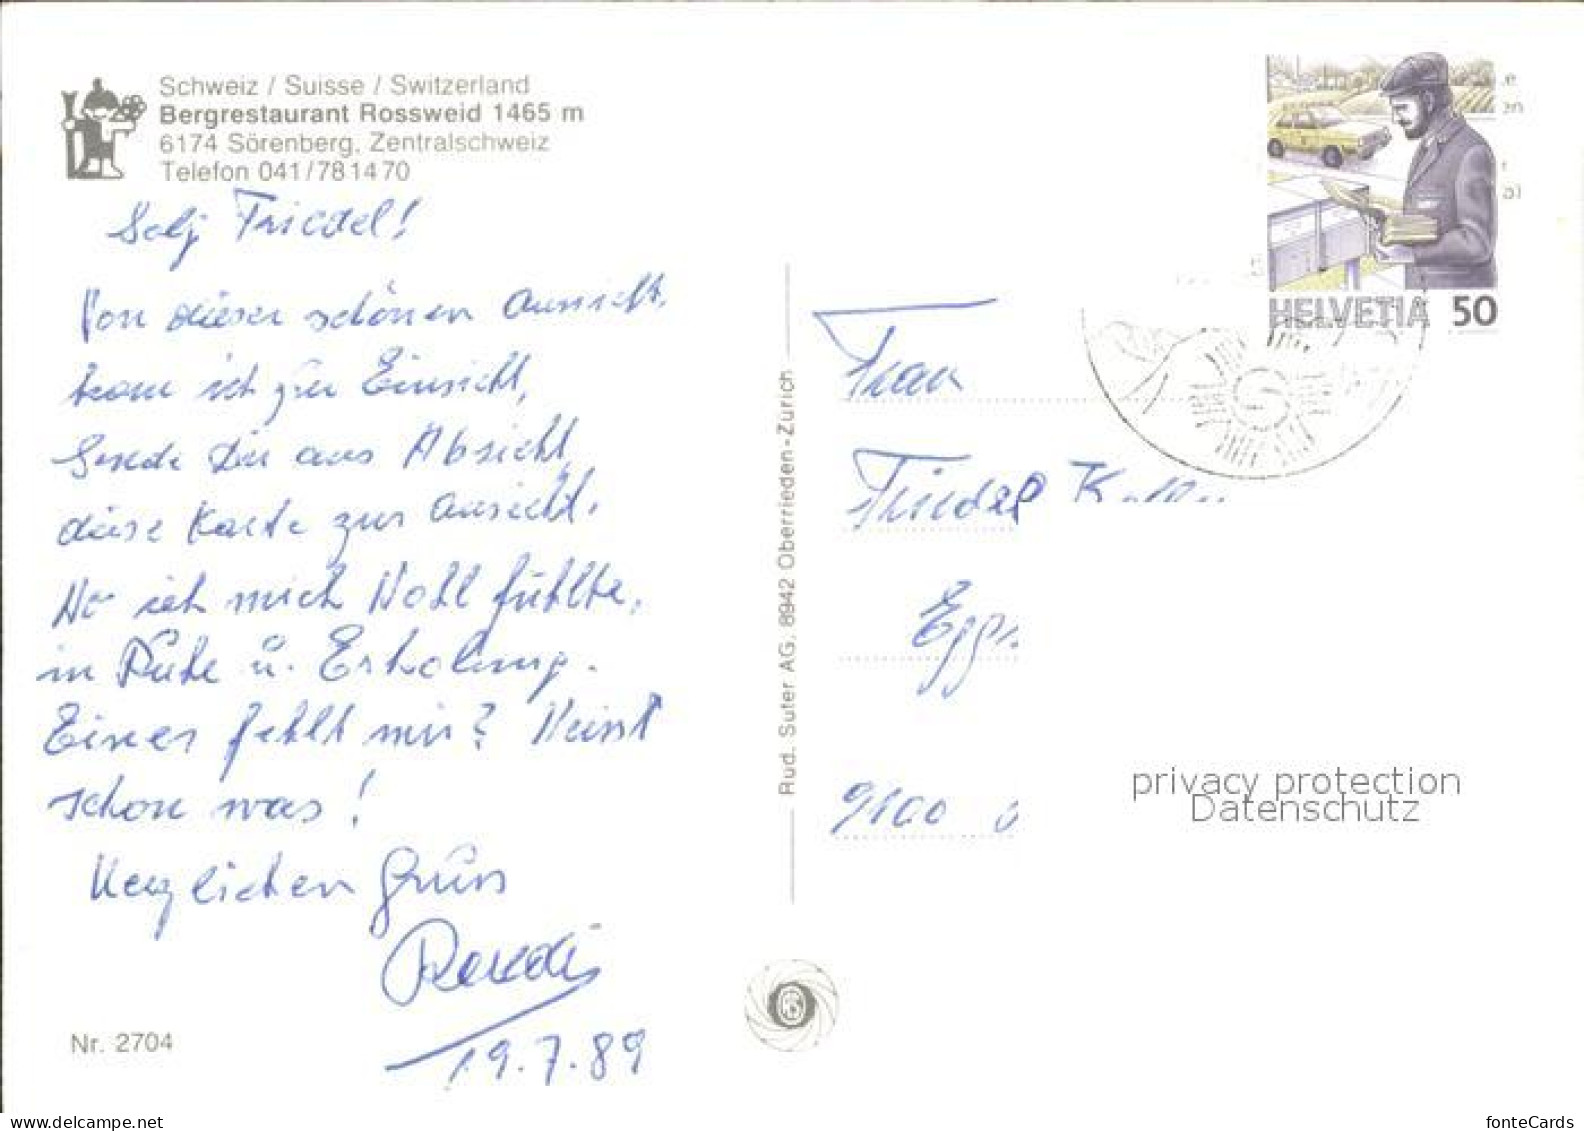 Schweiz / Suisse / Switzerland
Bergrestaurant Rossweid 1465 m
6174 Sörenberg, Zentralschweiz
Telefon 041/781470
Saly Friedel!
Von dieser schönen Aussicht,
kam ich zur Einsicht,
Sende Dir aus Absicht,
diese Karte zur Ansicht.
Wo ich mich Wohl fühlte,
in Ruhe u. Erholung.
Einer fehlt mir? Weisst
schon was!
Herzlichen Gruss
Ruedi
19.7.89
Nr. 2704
Rud. Suter AG, 8942 Oberrieden-Zürich
HELVETIA 50
Frau
Friedel
Egg
9100
privacy protection
Datenschutz
www.delcampe.net
fonteCards